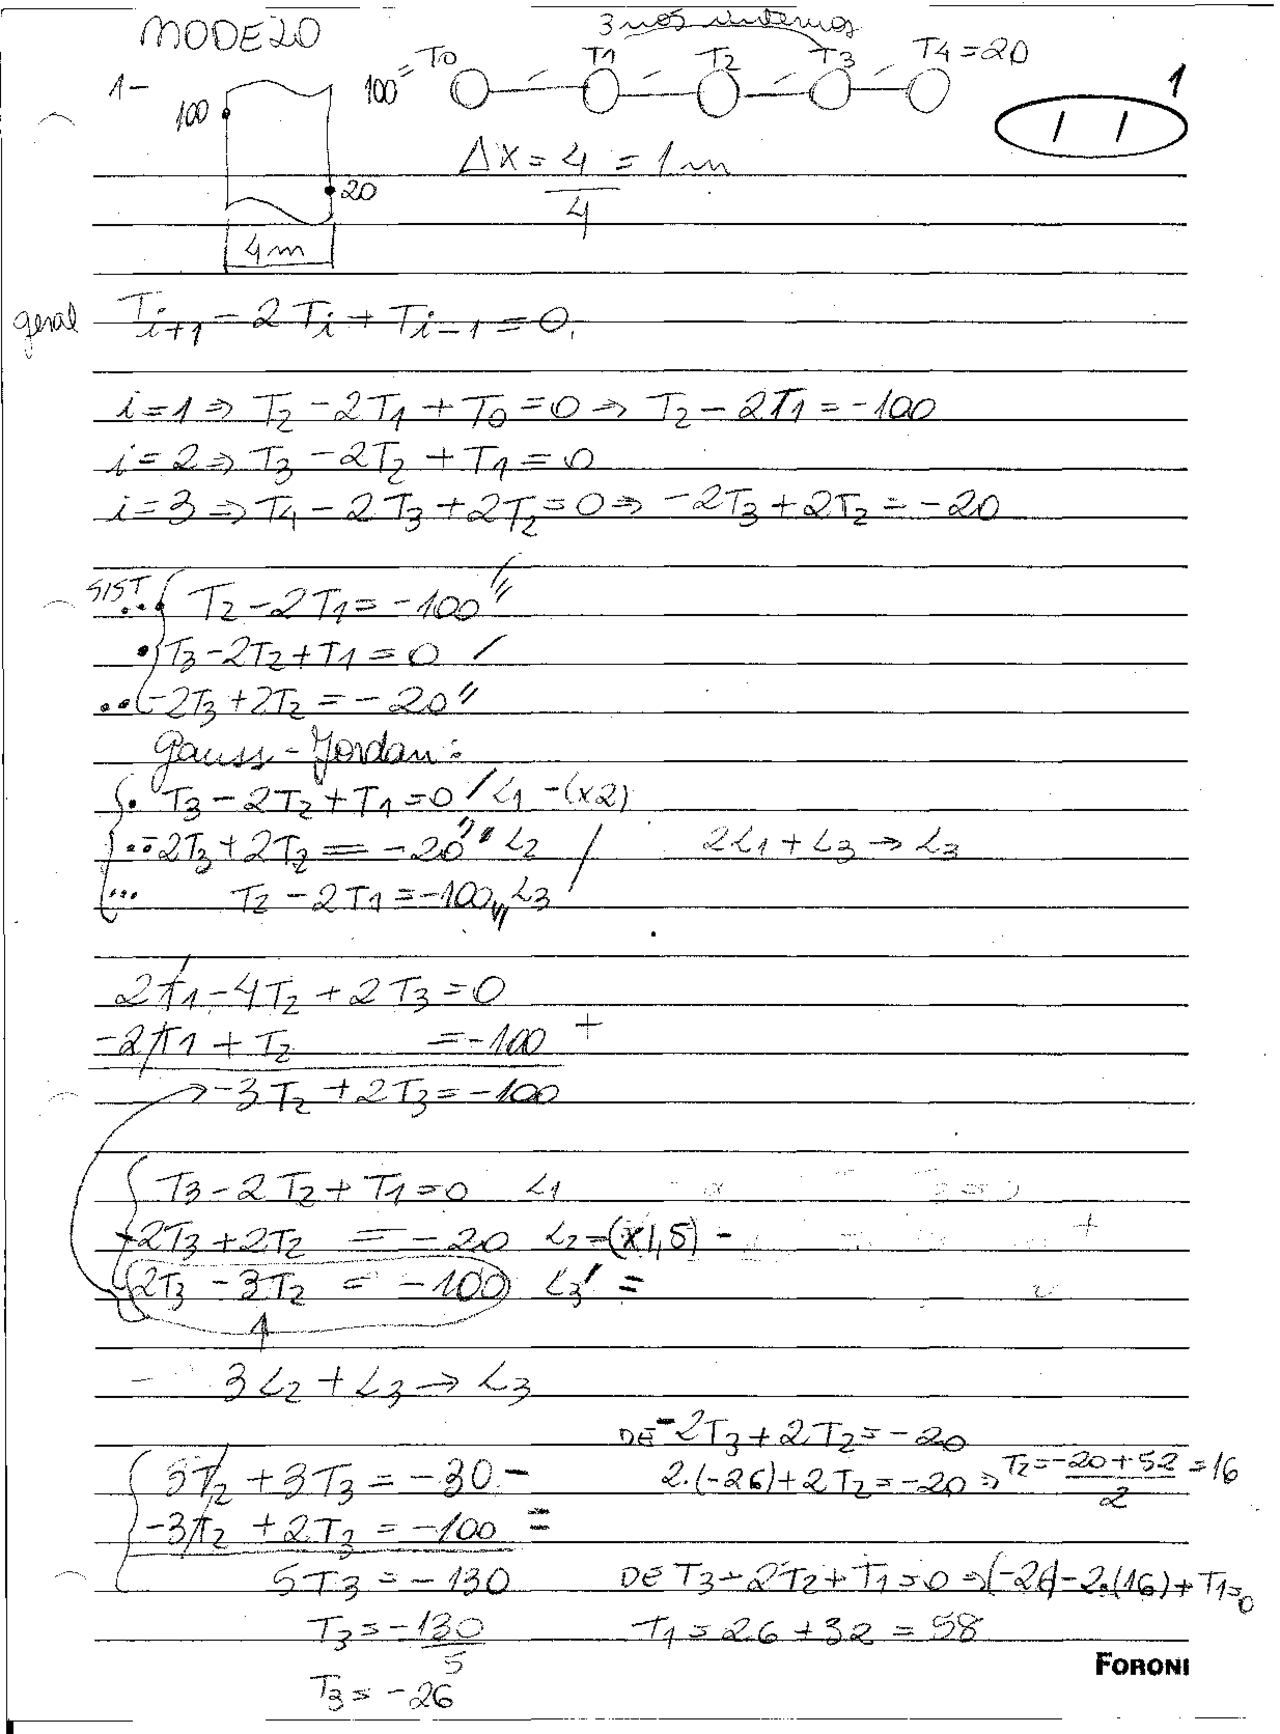 MODELO
3 nós internos
1-
100
20
4m
100 = T0 T1 T2 T3 T4 = 20
1
ΔX = 4/4 = 1m
geral Ti+1 - 2Ti + Ti-1 = 0.
i=1 ⇒ T2 - 2T1 + T0 = 0 ⇒ T2 - 2T1 = -100
i=2 ⇒ T3 - 2T2 + T1 = 0
i=3 ⇒ T4 - 2T3 + 2T2 = 0 ⇒ -2T3 + 2T2 = -20
SIST
T2 - 2T1 = -100
T3 - 2T2 + T1 = 0
-2T3 + 2T2 = -20
Gauss-Jordan:
T3 - 2T2 + T1 = 0 L1 -(x2)
-2T3 + 2T2 = -20 L2 2L1 + L3 → L3
T2 - 2T1 = -100 L3
2T1 - 4T2 + 2T3 = 0
-2T1 + T2 = -100 +
-3T2 + 2T3 = -100
T3 - 2T2 + T1 = 0 L1
-2T3 + 2T2 = -20 L2 -(x1,5) -
2T3 - 3T2 = -100 L3' =
3L2 + L3 → L3
3T2 + 3T3 = -30 -
-3T2 + 2T3 = -100 =
5T3 = -130
T3 = -130/5
T3 = -26
DE -2T3 + 2T2 = -20
2.(-26) + 2T2 = -20 ⇒ T2 = -20+52/2 = 16
DE T3 - 2T2 + T1 = 0 ⇒ (-26) - 2.(16) + T1 = 0
T1 = 26 + 32 = 58
FORONI